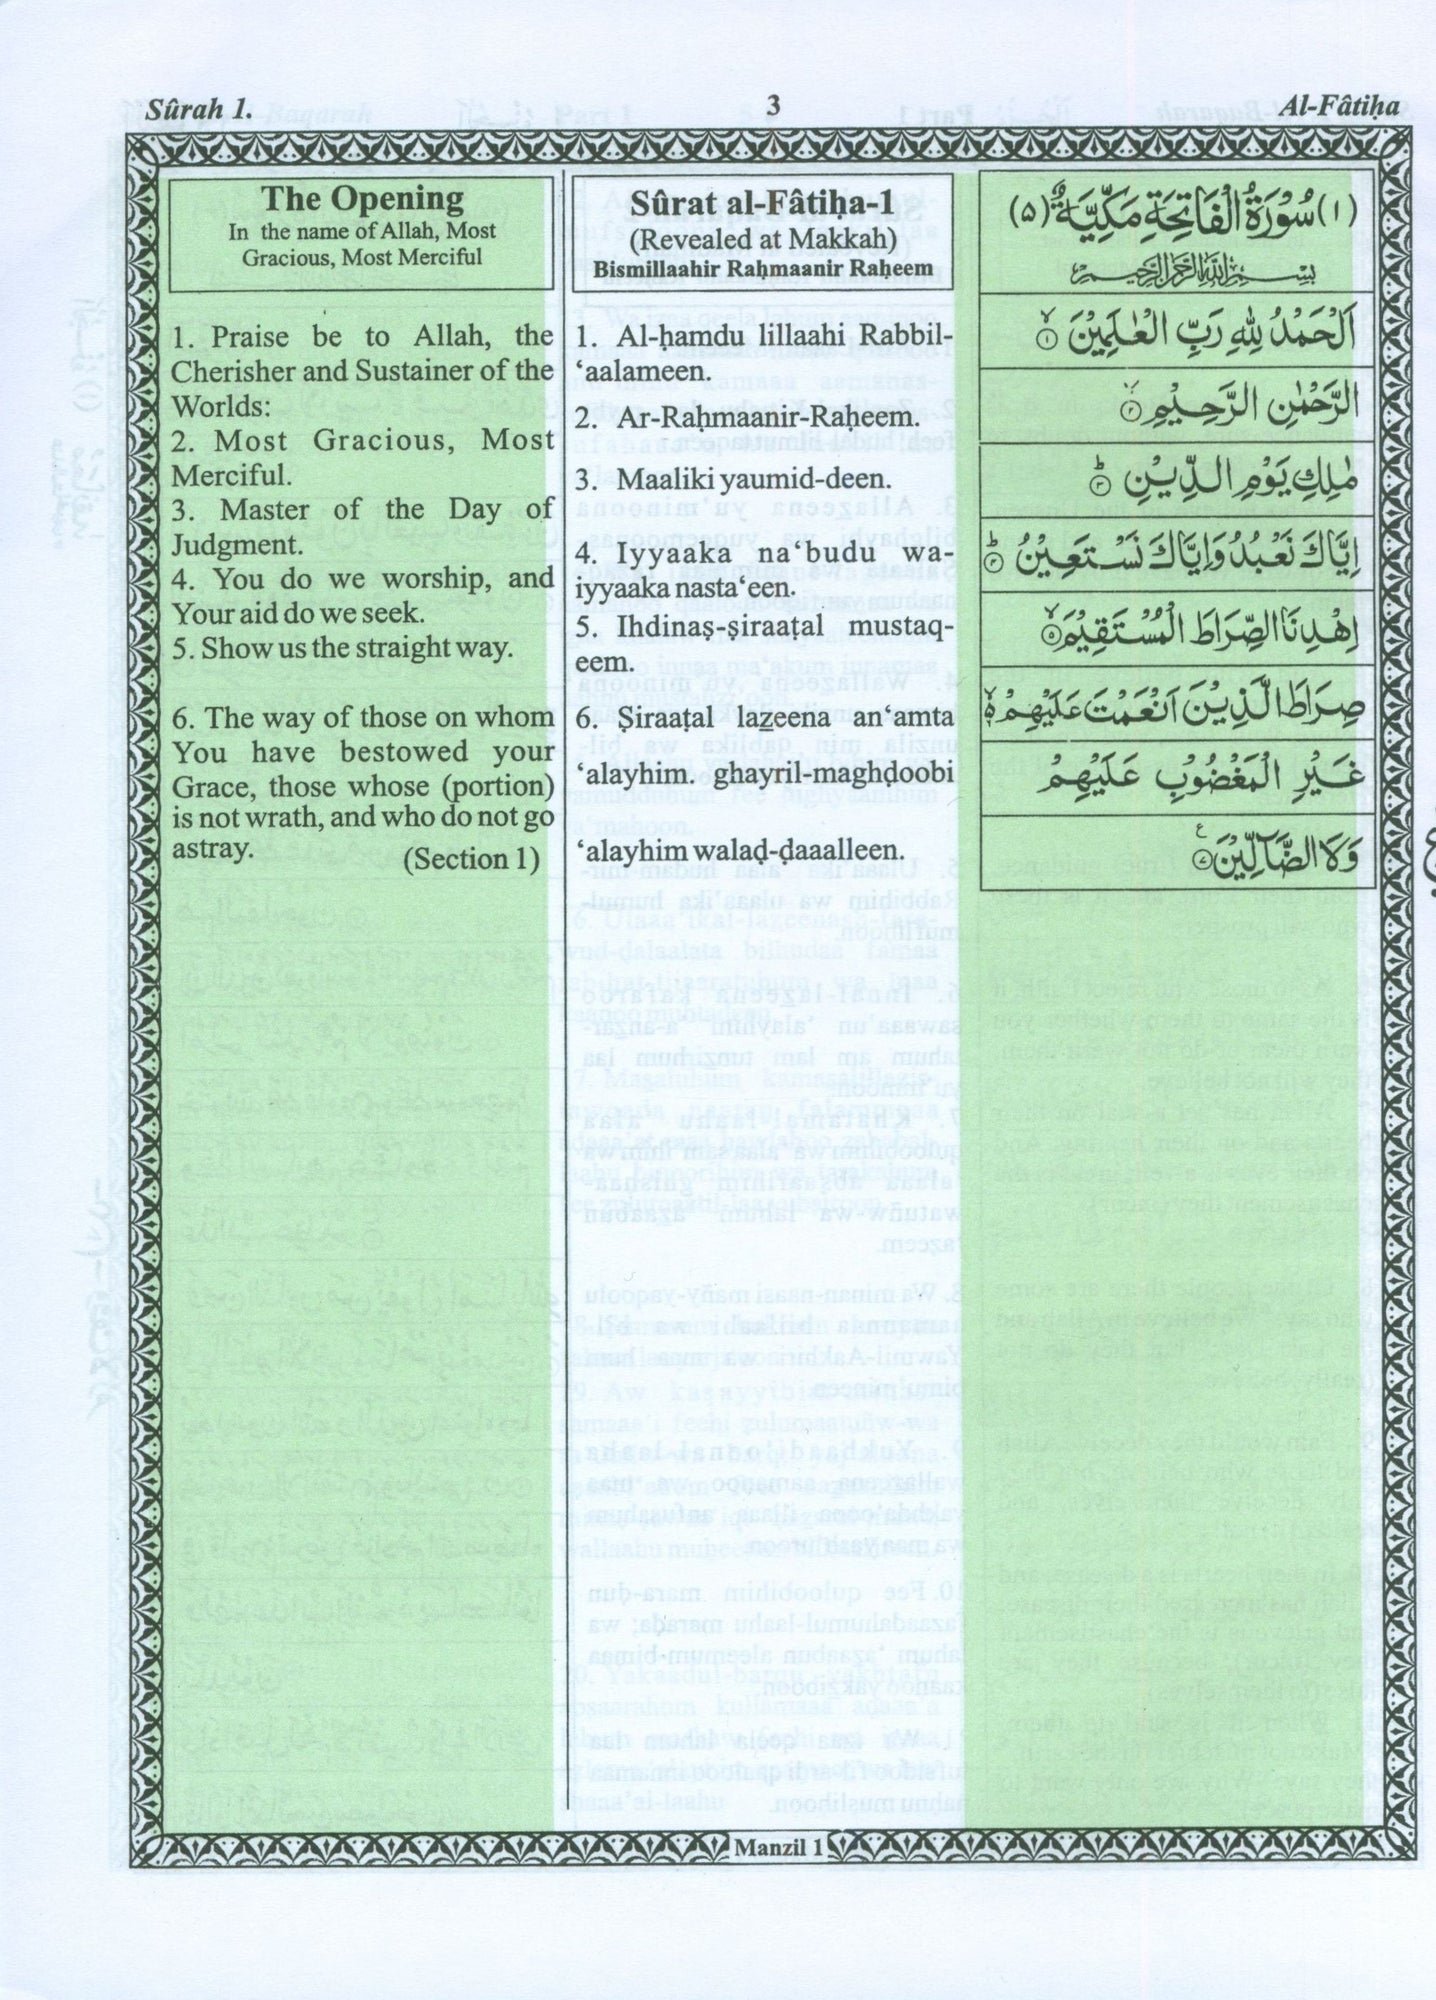 Sûrah 1.
3
Al-Fâtiḥa
The Opening
In the name of Allah, Most
Gracious, Most Merciful
1. Praise be to Allah, the
Cherisher and Sustainer of the
Worlds:
2. Most Gracious, Most
Merciful.
3. Master of the Day of
Judgment.
4. You do we worship, and
Your aid do we seek.
5. Show us the straight way.
6. The way of those on whom
You have bestowed your
Grace, those whose (portion)
is not wrath, and who do not go
astray.
(Section 1)
Sûrat al-Fâtiḥa-1
(Revealed at Makkah)
Bismillaahir Raḥmaanir Raḥeem
1. Al-ḥamdu lillaahi Rabbil-
‘aalameen.
2. Ar-Raḥmaanir-Raḥeem.
3. Maaliki yaumid-deen.
4. Iyyaaka na‘budu wa-
iyyaaka nasta‘een.
5. Ihdinaṣ-ṣiraaṭal mustaq-
eem.
6. Ṣiraaṭal lazeena an‘amta
‘alayhim. ghayril-maghḍoobi
‘alayhim walaḍ-ḍaaalleen.
(١) سُوْرَةُ الْفَاتِحَةِ مَكِّيَّةٌ (۵)
بِسْمِ اللهِ الرَّحْمٰنِ الرَّحِيْمِ
اَلْحَمْدُ لِلّٰهِ رَبِّ الْعٰلَمِيْنَ ۙ۱
الرَّحْمٰنِ الرَّحِيْمِ ۙ۲
مٰلِكِ يَوْمِ الدِّيْنِ ؕ۳
اِيَّاكَ نَعْبُدُ وَاِيَّاكَ نَسْتَعِيْنُ ؕ۴
اِهْدِنَا الصِّرَاطَ الْمُسْتَقِيْمَ ۙ۵
صِرَاطَ الَّذِيْنَ اَنْعَمْتَ عَلَيْهِمْ ۙ۶
غَيْرِ الْمَغْضُوْبِ عَلَيْهِمْ
وَلَا الضَّآلِّيْنَ ۷ ع
Manzil 1